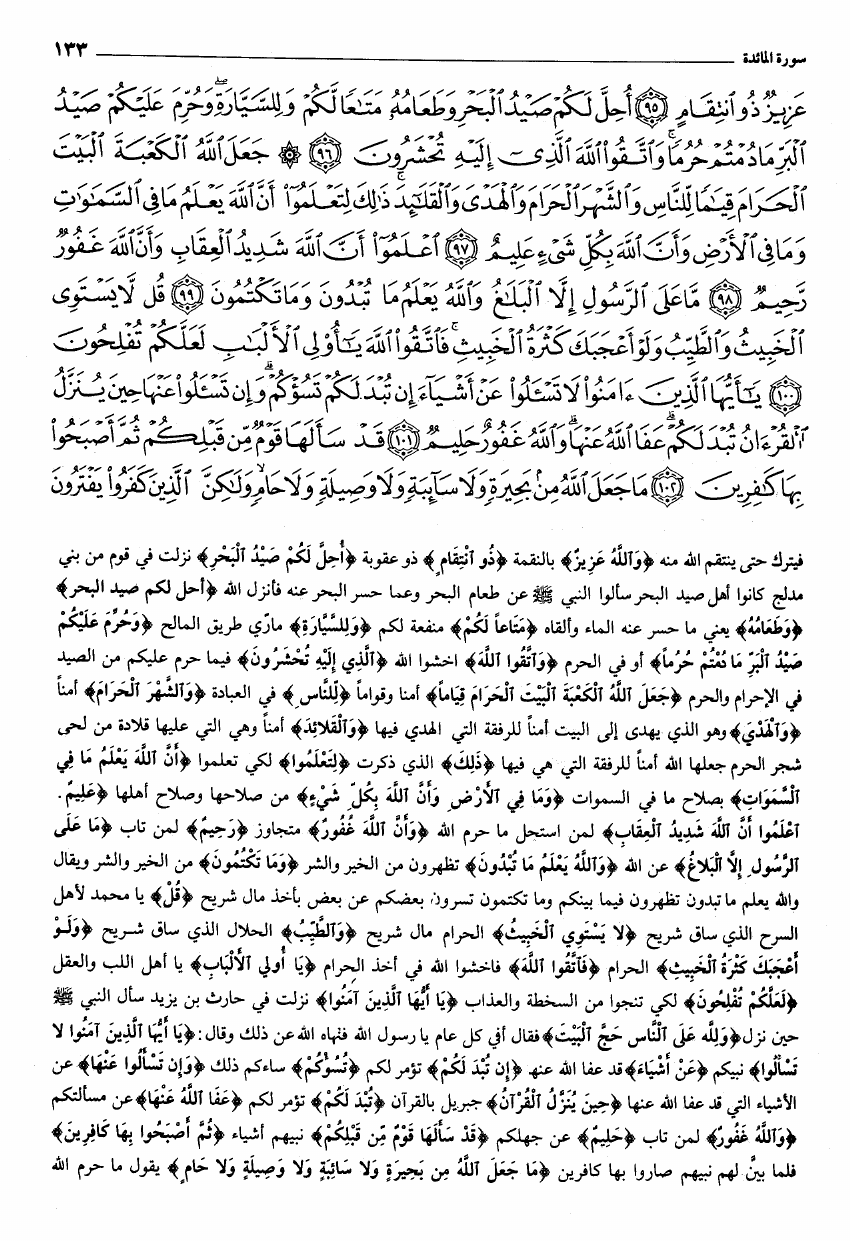 سورة المائدة ١٣٣
عَزِيزٌ ذُو ٱنتِقَامٍ ﴿٩٥﴾ أُحِلَّ لَكُمْ صَيْدُ ٱلْبَحْرِ وَطَعَامُهُۥ مَتَٰعًا لَّكُمْ وَلِلسَّيَّارَةِ ۖ وَحُرِّمَ عَلَيْكُمْ صَيْدُ
ٱلْبَرِّ مَا دُمْتُمْ حُرُمًا ۗ وَٱتَّقُوا۟ ٱللَّهَ ٱلَّذِىٓ إِلَيْهِ تُحْشَرُونَ ﴿٩٦﴾ ۞ جَعَلَ ٱللَّهُ ٱلْكَعْبَةَ ٱلْبَيْتَ
ٱلْحَرَامَ قِيَٰمًا لِّلنَّاسِ وَٱلشَّهْرَ ٱلْحَرَامَ وَٱلْهَدْىَ وَٱلْقَلَٰٓئِدَ ۚ ذَٰلِكَ لِتَعْلَمُوٓا۟ أَنَّ ٱللَّهَ يَعْلَمُ مَا فِى ٱلسَّمَٰوَٰتِ
وَمَا فِى ٱلْأَرْضِ وَأَنَّ ٱللَّهَ بِكُلِّ شَىْءٍ عَلِيمٌ ﴿٩٧﴾ ٱعْلَمُوٓا۟ أَنَّ ٱللَّهَ شَدِيدُ ٱلْعِقَابِ وَأَنَّ ٱللَّهَ غَفُورٌ
رَّحِيمٌ ﴿٩٨﴾ مَّا عَلَى ٱلرَّسُولِ إِلَّا ٱلْبَلَٰغُ ۗ وَٱللَّهُ يَعْلَمُ مَا تُبْدُونَ وَمَا تَكْتُمُونَ ﴿٩٩﴾ قُل لَّا يَسْتَوِى
ٱلْخَبِيثُ وَٱلطَّيِّبُ وَلَوْ أَعْجَبَكَ كَثْرَةُ ٱلْخَبِيثِ ۚ فَٱتَّقُوا۟ ٱللَّهَ يَٰٓأُو۟لِى ٱلْأَلْبَٰبِ لَعَلَّكُمْ تُفْلِحُونَ
﴿١٠٠﴾ يَٰٓأَيُّهَا ٱلَّذِينَ ءَامَنُوا۟ لَا تَسْـَٔلُوا۟ عَنْ أَشْيَآءَ إِن تُبْدَ لَكُمْ تَسُؤْكُمْ وَإِن تَسْـَٔلُوا۟ عَنْهَا حِينَ يُنَزَّلُ
ٱلْقُرْءَانُ تُبْدَ لَكُمْ عَفَا ٱللَّهُ عَنْهَا ۗ وَٱللَّهُ غَفُورٌ حَلِيمٌ ﴿١٠١﴾ قَدْ سَأَلَهَا قَوْمٌ مِّن قَبْلِكُمْ ثُمَّ أَصْبَحُوا۟
بِهَا كَٰفِرِينَ ﴿١٠٢﴾ مَا جَعَلَ ٱللَّهُ مِنۢ بَحِيرَةٍ وَلَا سَآئِبَةٍ وَلَا وَصِيلَةٍ وَلَا حَامٍ ۙ وَلَٰكِنَّ ٱلَّذِينَ كَفَرُوا۟ يَفْتَرُونَ
فيترك حتى ينتقم الله منه ﴿وَٱللَّهُ عَزِيزٌ﴾ بالنقمة ﴿ذُو ٱنْتِقَامٍ﴾ ذو عقوبة ﴿أُحِلَّ لَكُمْ صَيْدُ ٱلْبَحْرِ﴾ نزلت في قوم من بني
مدلج كانوا أهل صيد البحر سألوا النبي ﷺ عن طعام البحر وعما حسر البحر عنه فأنزل الله ﴿أحل لكم صيد البحر﴾
﴿وَطَعَامُهُ﴾ يعني ما حسر عنه الماء وألقاه ﴿مَتَاعاً لَكُمْ﴾ منفعة لكم ﴿وَلِلسَّيَّارَةِ﴾ مارّي طريق المالح ﴿وَحُرِّمَ عَلَيْكُمْ
صَيْدُ ٱلْبَرِّ مَا دُمْتُمْ حُرُماً﴾ أو في الحرم ﴿وَٱتَّقُوا ٱللَّهَ﴾ اخشوا الله ﴿ٱلَّذِي إِلَيْهِ تُحْشَرُونَ﴾ فيما حرم عليكم من الصيد
في الإحرام والحرم ﴿جَعَلَ ٱللَّهُ ٱلْكَعْبَةَ ٱلْبَيْتَ ٱلْحَرَامَ قِيَاماً﴾ أمنا وقواماً ﴿لِّلنَّاسِ﴾ في العبادة ﴿وَٱلشَّهْرَ ٱلْحَرَامَ﴾ أمناً
﴿وَٱلْهَدْيَ﴾ وهو الذي يهدى إلى البيت أمناً للرفقة التي الهدي فيها ﴿وَٱلْقَلَائِدَ﴾ أمناً وهي التي عليها قلادة من لحى
شجر الحرم جعلها الله أمناً للرفقة التي هي فيها ﴿ذَلِكَ﴾ الذي ذكرت ﴿لِتَعْلَمُوا﴾ لكي تعلموا ﴿أَنَّ ٱللَّهَ يَعْلَمُ مَا فِي
ٱلسَّمَوَاتِ﴾ بصلاح ما في السموات ﴿وَمَا فِي ٱلأَرْضِ وَأَنَّ ٱللَّهَ بِكُلِّ شَيْءٍ﴾ من صلاحها وصلاح أهلها ﴿عَلِيمٌ.
ٱعْلَمُوا أَنَّ ٱللَّهَ شَدِيدُ ٱلْعِقَابِ﴾ لمن استحل ما حرم الله ﴿وَأَنَّ ٱللَّهَ غَفُورٌ﴾ متجاوز ﴿رَحِيمٌ﴾ لمن تاب ﴿مَا عَلَى
ٱلرَّسُولِ إِلَّا ٱلْبَلَاغُ﴾ عن الله ﴿وَٱللَّهُ يَعْلَمُ مَا تُبْدُونَ﴾ تظهرون من الخير والشر ﴿وَمَا تَكْتُمُونَ﴾ من الخير والشر ويقال
والله يعلم ما تبدون تظهرون فيما بينكم وما تكتمون تسرون بعضكم عن بعض بأخذ مال شريح ﴿قُلْ﴾ يا محمد لأهل
السرح الذي ساق شريح ﴿لا يَسْتَوِي ٱلْخَبِيثُ﴾ الحرام مال شريح ﴿وَٱلطَّيِّبُ﴾ الحلال الذي ساق شريح ﴿وَلَوْ
أَعْجَبَكَ كَثْرَةُ ٱلْخَبِيثِ﴾ الحرام ﴿فَٱتَّقُوا ٱللَّهَ﴾ فاخشوا الله في أخذ الحرام ﴿يَا أُولِي ٱلأَلْبَابِ﴾ يا أهل اللب والعقل
﴿لَعَلَّكُمْ تُفْلِحُونَ﴾ لكي تنجوا من السخطة والعذاب ﴿يَا أَيُّهَا ٱلَّذِينَ آمَنُوا﴾ نزلت في حارث بن يزيد سأل النبي ﷺ
حين نزل ﴿وَلِلَّهِ عَلَى ٱلنَّاسِ حَجُّ ٱلْبَيْتِ﴾ فقال أفي كل عام يا رسول الله فنهاه الله عن ذلك وقال: ﴿يَا أَيُّهَا ٱلَّذِينَ آمَنُوا لا
تَسْأَلُوا﴾ نبيكم ﴿عَنْ أَشْيَاءَ﴾ قد عفا الله عنها ﴿إِن تُبْدَ لَكُمْ﴾ تؤمر لكم ﴿تَسُؤْكُمْ﴾ ساءكم ذلك ﴿وَإِن تَسْأَلُوا عَنْهَا﴾ عن
الأشياء التي قد عفا الله عنها ﴿حِينَ يُنَزَّلُ ٱلْقُرْآنُ﴾ جبريل بالقرآن ﴿تُبْدَ لَكُمْ﴾ تؤمر لكم ﴿عَفَا ٱللَّهُ عَنْهَا﴾ عن مسألتكم
﴿وَٱللَّهُ غَفُورٌ﴾ لمن تاب ﴿حَلِيمٌ﴾ عن جهلكم ﴿قَدْ سَأَلَهَا قَوْمٌ مِّن قَبْلِكُمْ﴾ نبيهم أشياء ﴿ثُمَّ أَصْبَحُوا بِهَا كَافِرِينَ﴾
فلما بينّ لهم نبيهم صاروا بها كافرين ﴿مَا جَعَلَ ٱللَّهُ مِن بَحِيرَةٍ وَلا سَائِبَةٍ وَلا وَصِيلَةٍ وَلا حَامٍ﴾ يقول ما حرم الله